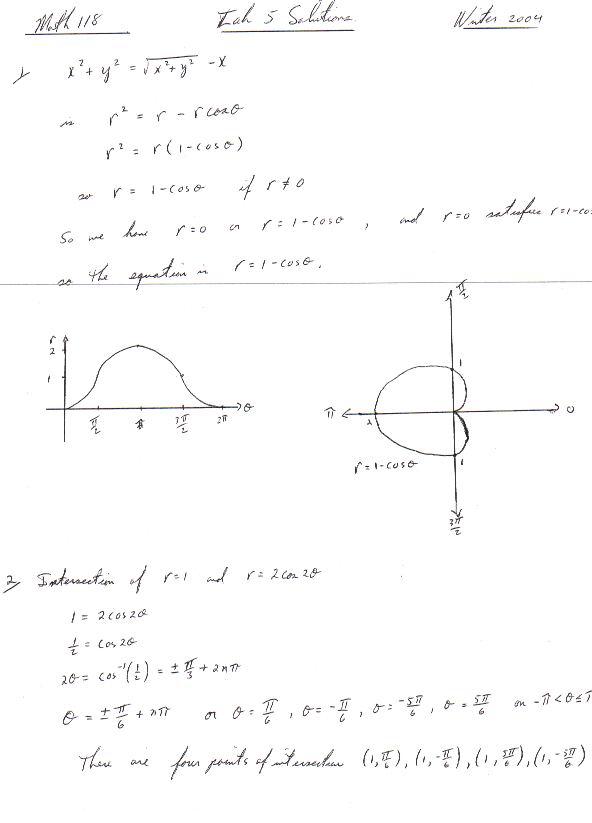 Math 118 Lab 5 Solutions Winter 2004
1) x² + y² = √(x² + y²) - x
is r² = r - r cos θ
r² = r(1 - cos θ)
so r = 1 - cos θ if r ≠ 0
So we have r = 0 or r = 1 - cos θ, and r = 0 satisfies r = 1 - co
so the equation is r = 1 - cos θ.
r
2
1
π/2 π 3π/2 2π θ
π/2
1
π 2 0
1
r = 1 - cos θ
3π/2
2) Intersection of r = 1 and r = 2 cos 2θ
1 = 2 cos 2θ
1/2 = cos 2θ
2θ = cos⁻¹(1/2) = ± π/3 + 2nπ
θ = ± π/6 + nπ or θ = π/6, θ = -π/6, θ = -5π/6, θ = 5π/6 on -π < θ ≤ π
There are four points of intersection (1, π/6), (1, -π/6), (1, 5π/6), (1, -5π/6)